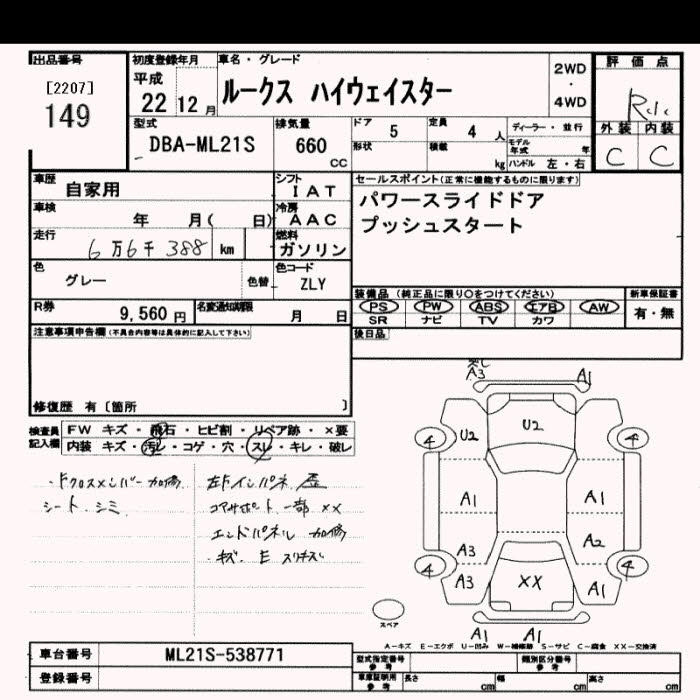 出品番号
[2207]
149
初度登録年月
平成
22 12 月
車名・グレード
ルークス ハイウェイスター
2WD
・
4WD
評価点
外装 内装
C C
型式
DBA-ML21S
排気量
660
cc
ドア 5
定員 4 人
形状
積載 kg
ディーラー・並行
モデル年式 年
ハンドル 左・右
車歴
自家用
シフト
IAT
車検
年 月( 日)
冷房
AAC
走行
6万6千388 km
燃料
ガソリン
色
グレー
色替
色コード
ZLY
R券
9,560 円
名変通知期限
月 日
セールスポイント(正常に機能するものに限ります)
パワースライドドア
プッシュスタート
装備品(純正品に限り○をつけてください)
新車保証書
PS PW ABS エアB AW
有・無
SR ナビ TV カワ
後日品
注意事項申告欄(不具合内容等は具体的に記入して下さい)
修復歴 有〔箇所 〕
検査員
記入欄
FW キズ・飛石・ヒビ割・リペア跡・×要
内装 キズ・汚レ・コゲ・穴・スレ・キレ・破レ
シート シミ
コアサポート 一部 ××
エンドパネル 加修
キズ E スリキズ
A3
A1
U2
U2
4
4
A1
A1
A3
A2
4
4
A3
XX
A1
スペア
A1 A1
A-キズ E-エクボ U-凹み W-補修跡 S-サビ C-腐食 XX-交換済
車台番号
ML21S-538771
登録番号
型式指定番号
参考
類別区分番号
参考
車庫証明用
参考
長さ cm
幅 cm
高さ cm